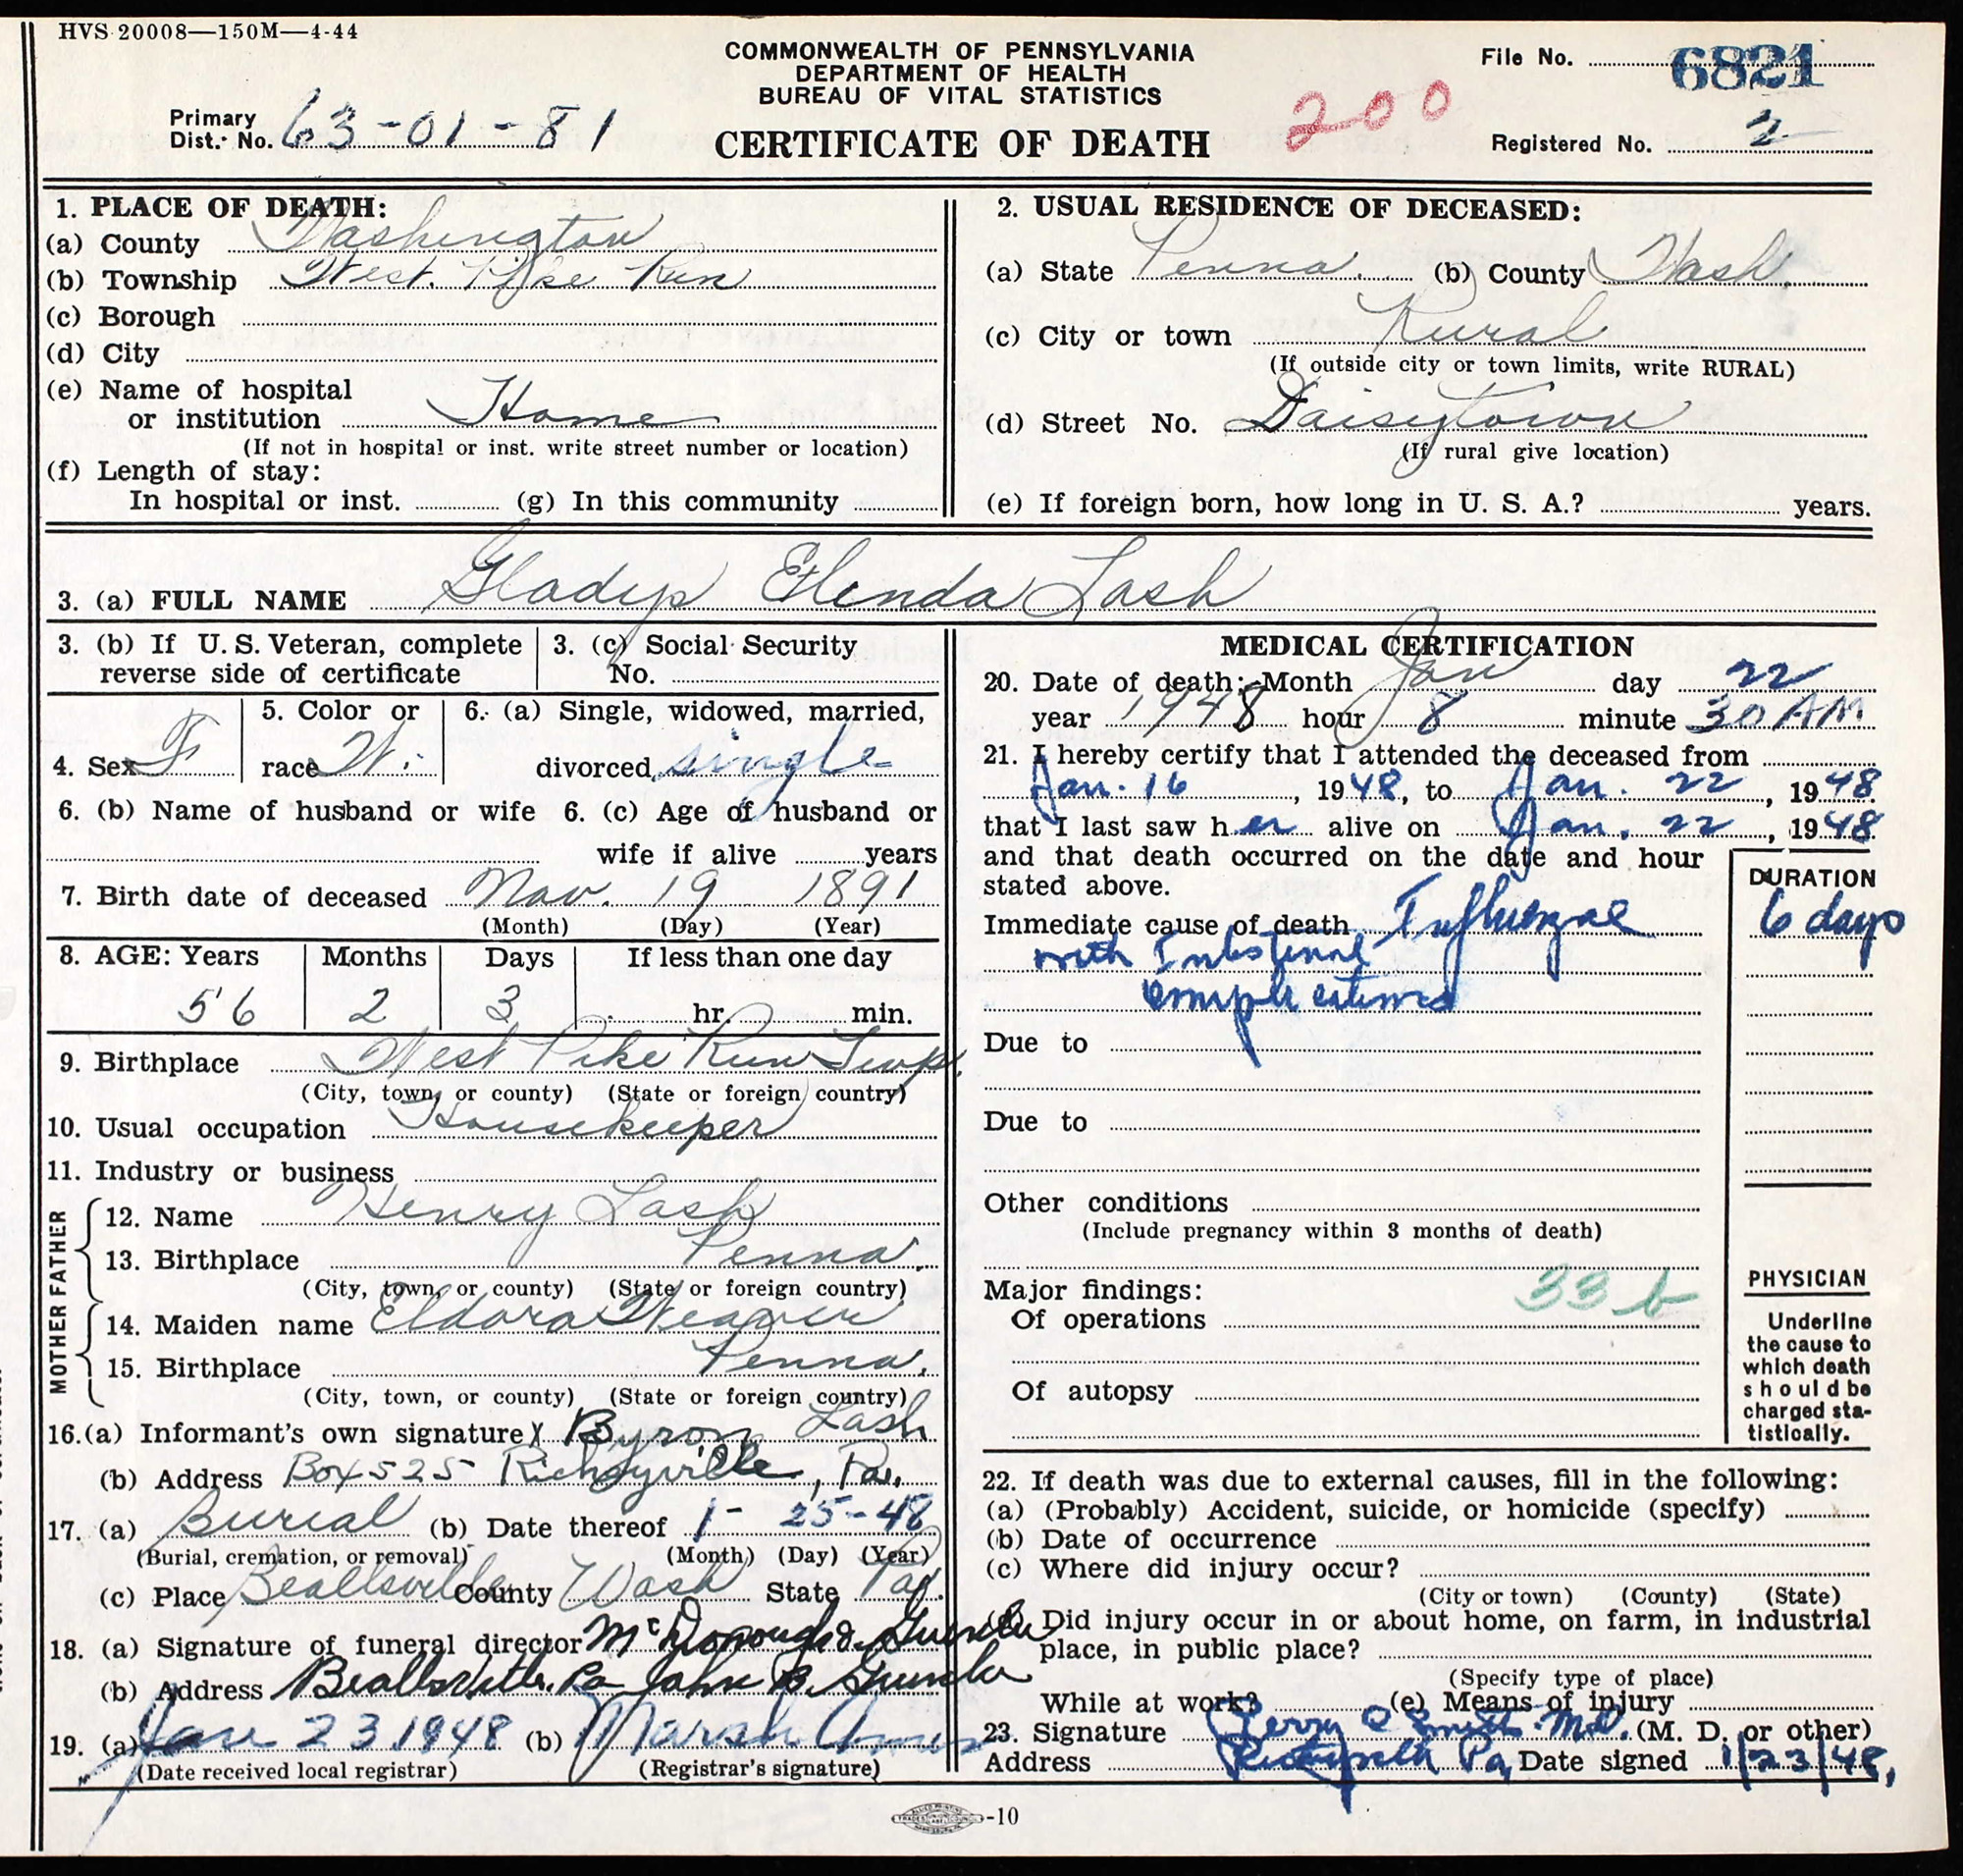 HVS 20008—150M—4-44
COMMONWEALTH OF PENNSYLVANIA
DEPARTMENT OF HEALTH
BUREAU OF VITAL STATISTICS
CERTIFICATE OF DEATH
200
File No. 6821
Primary Dist. No. 63-01-81
Registered No. 2
1. PLACE OF DEATH:
(a) County Washington
(b) Township West Pike Run
(c) Borough
(d) City
(e) Name of hospital
or institution Home
(If not in hospital or inst. write street number or location)
(f) Length of stay:
In hospital or inst. (g) In this community
2. USUAL RESIDENCE OF DECEASED:
(a) State Penna. (b) County Wash.
(c) City or town Rural
(If outside city or town limits, write RURAL)
(d) Street No. Daisytown
(If rural give location)
(e) If foreign born, how long in U. S. A.? years.
3. (a) FULL NAME Gladys Elenda Lash
3. (b) If U. S. Veteran, complete
reverse side of certificate
3. (c) Social Security
No.
4. Sex F
5. Color or
race W.
6. (a) Single, widowed, married,
divorced single
6. (b) Name of husband or wife 6. (c) Age of husband or
wife if alive years
7. Birth date of deceased Nov. 19 1891
(Month) (Day) (Year)
8. AGE: Years Months Days If less than one day
56 2 3 hr. min.
9. Birthplace West Pike Run Twp.
(City, town, or county) (State or foreign country)
10. Usual occupation Housekeeper
11. Industry or business
FATHER
12. Name Henry Lash
13. Birthplace Penna.
(City, town, or county) (State or foreign country)
MOTHER
14. Maiden name Eldora Weaver
15. Birthplace Penna.
(City, town, or county) (State or foreign country)
16.(a) Informant's own signature X Byron Lash
(b) Address Box 525 Richeyville, Pa.
17. (a) Burial (b) Date thereof 1-25-48
(Burial, cremation, or removal) (Month) (Day) (Year)
(c) Place Beallsville County Wash State Pa.
18. (a) Signature of funeral director McDonough &
(b) Address Beallsville, Pa John B.
19. (a) Jan 23 1948 (b) Marsh
(Date received local registrar) (Registrar's signature)
MEDICAL CERTIFICATION
20. Date of death: Month Jan day 22
year 1948 hour 8 minute 30 AM
21. I hereby certify that I attended the deceased from
Jan. 16, 1948, to Jan. 22, 1948
that I last saw her alive on Jan. 22, 1948
and that death occurred on the date and hour
stated above.
DURATION
Immediate cause of death Influenzae 6 days
with Intestinal
complications
Due to
Due to
Other conditions
(Include pregnancy within 3 months of death)
Major findings: 33 b
Of operations
Of autopsy
PHYSICIAN
Underline
the cause to
which death
should be
charged sta-
tistically.
22. If death was due to external causes, fill in the following:
(a) (Probably) Accident, suicide, or homicide (specify)
(b) Date of occurrence
(c) Where did injury occur?
(City or town) (County) (State)
(d) Did injury occur in or about home, on farm, in industrial
place, in public place?
(Specify type of place)
While at work? (e) Means of injury
23. Signature Smith M.D. (M. D. or other)
Address Pa, Date signed 1/23/48,
-10